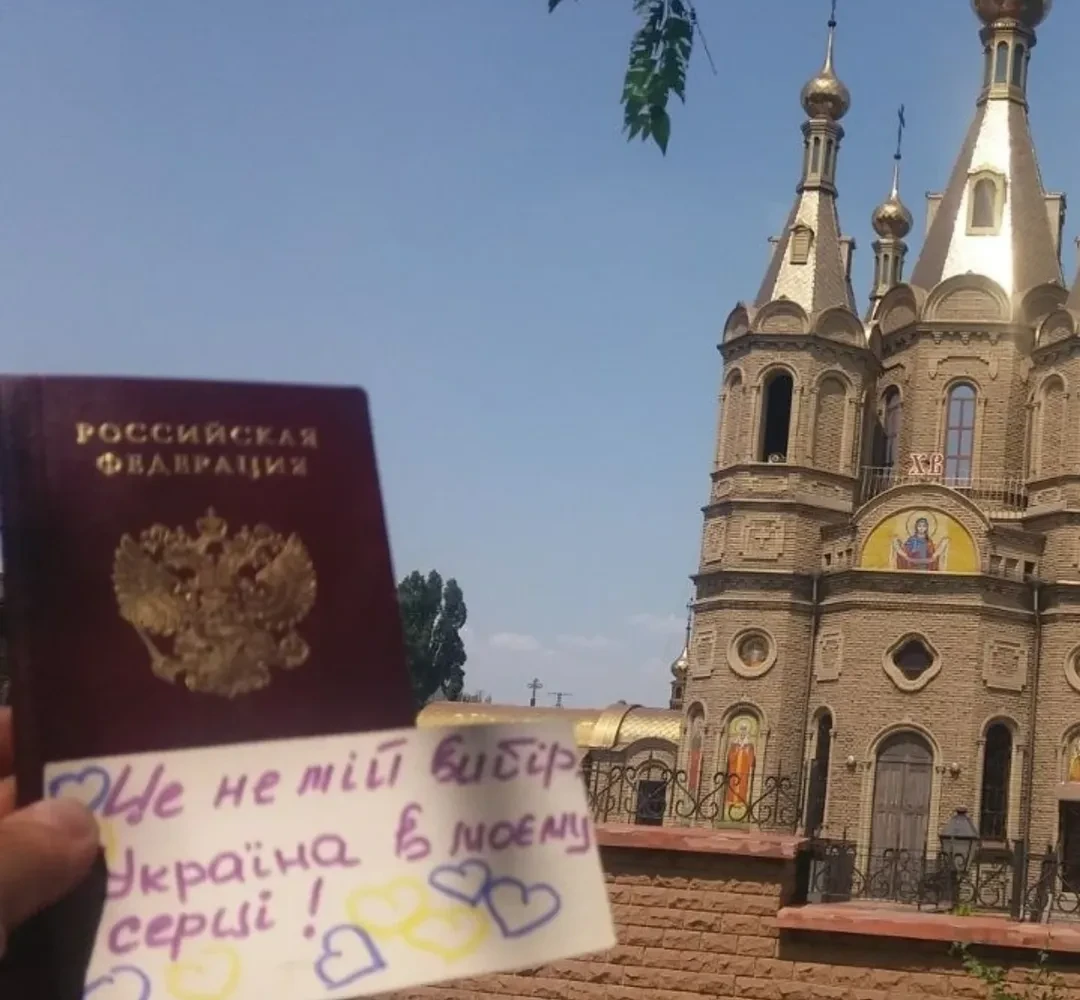 РОССИЙСКАЯ
ФЕДЕРАЦИЯ
ХВ
Це не мій вибір.
Україна в моєму
серці!